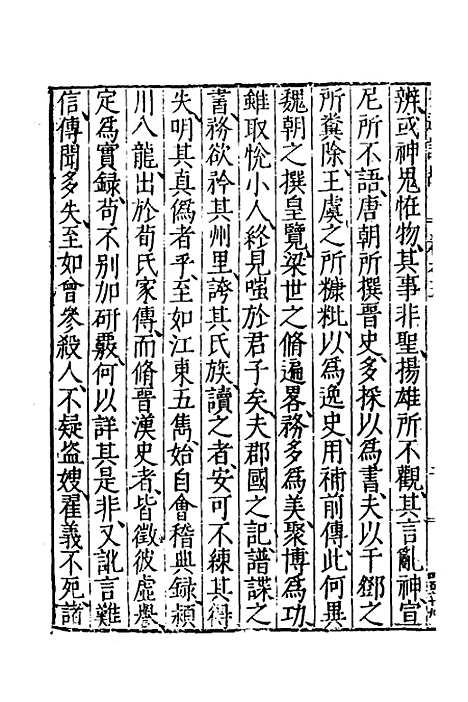 辨或神鬼怪物其事非聖揚雄所不觀其言亂神宣
尼所不語唐朝所撰晉史多採以爲書夫以干鄧之
所糞除王虞之所糠粃以爲逸史用補前傳此何異
魏朝之撰皇覽梁世之脩遍畧務多爲美聚博爲功
雖取恱小人終見嗤於君子矣夫郡國之記譜諜之
書務欲矜其州里誇其氏族讀之者安可不練其得
失明其真僞者乎至如江東五雋始自會稽典録潁
川八龍出於荀氏家傳而脩晉漢史者皆徵彼虛譽
定爲實録苟不别加研覈何以詳其是非又訛言難
信傳聞多失至如曾參殺人不疑盗嫂翟義不死諸